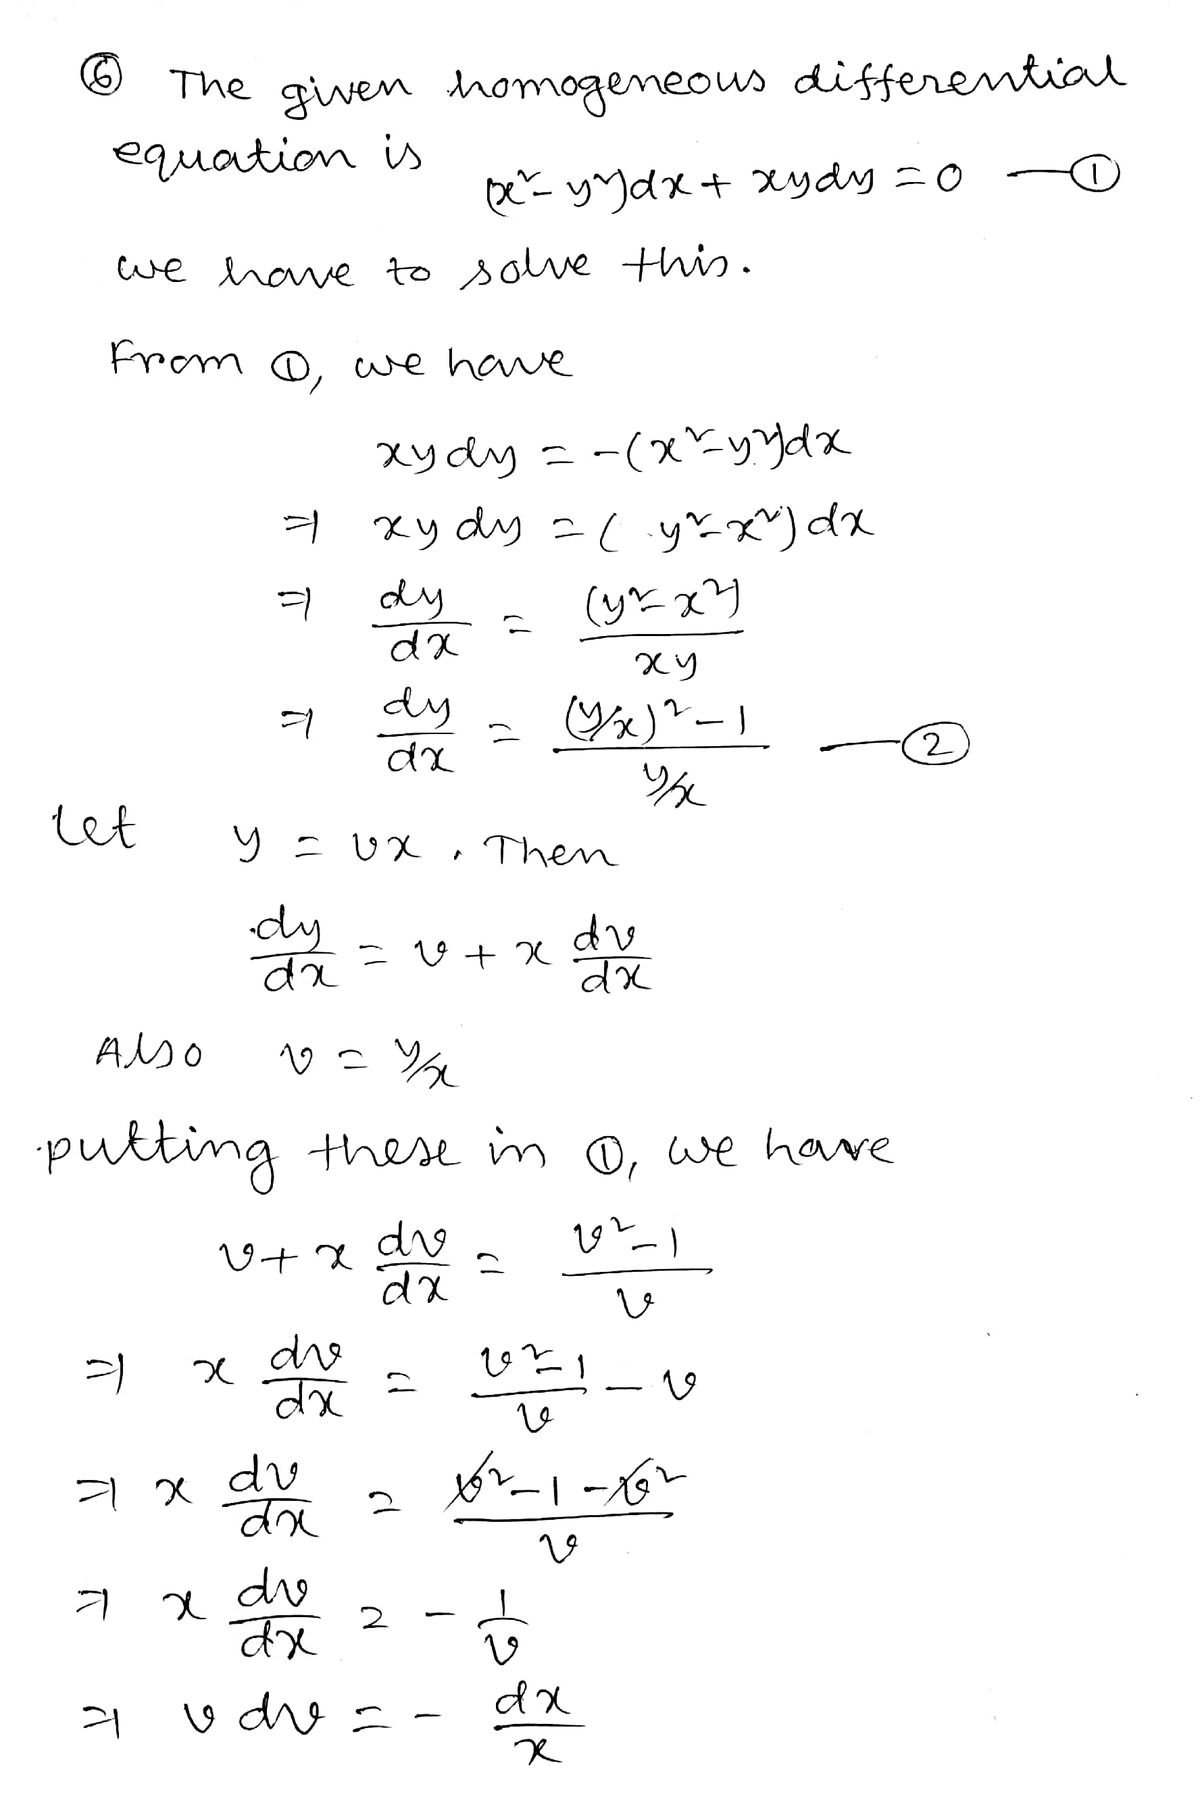 ⑥ The given homogeneous differential
equation is
(x²-y²)dx + xydy = 0 —①
we have to solve this.
From ①, we have
xydy = -(x²-y²)dx
⇒ xydy = (y²-x²)dx
⇒ dy/dx = (y²-x²)/xy
⇒ dy/dx = ((y/x)²-1)/(y/x) —②
Let y = vx. Then
dy/dx = v + x dv/dx
Also v = y/x
putting these in ①, we have
v + x dv/dx = (v²-1)/v
⇒ x dv/dx = (v²-1)/v - v
⇒ x dv/dx = (v²-1-v²)/v
⇒ x dv/dx = -1/v
⇒ v dv = -dx/x